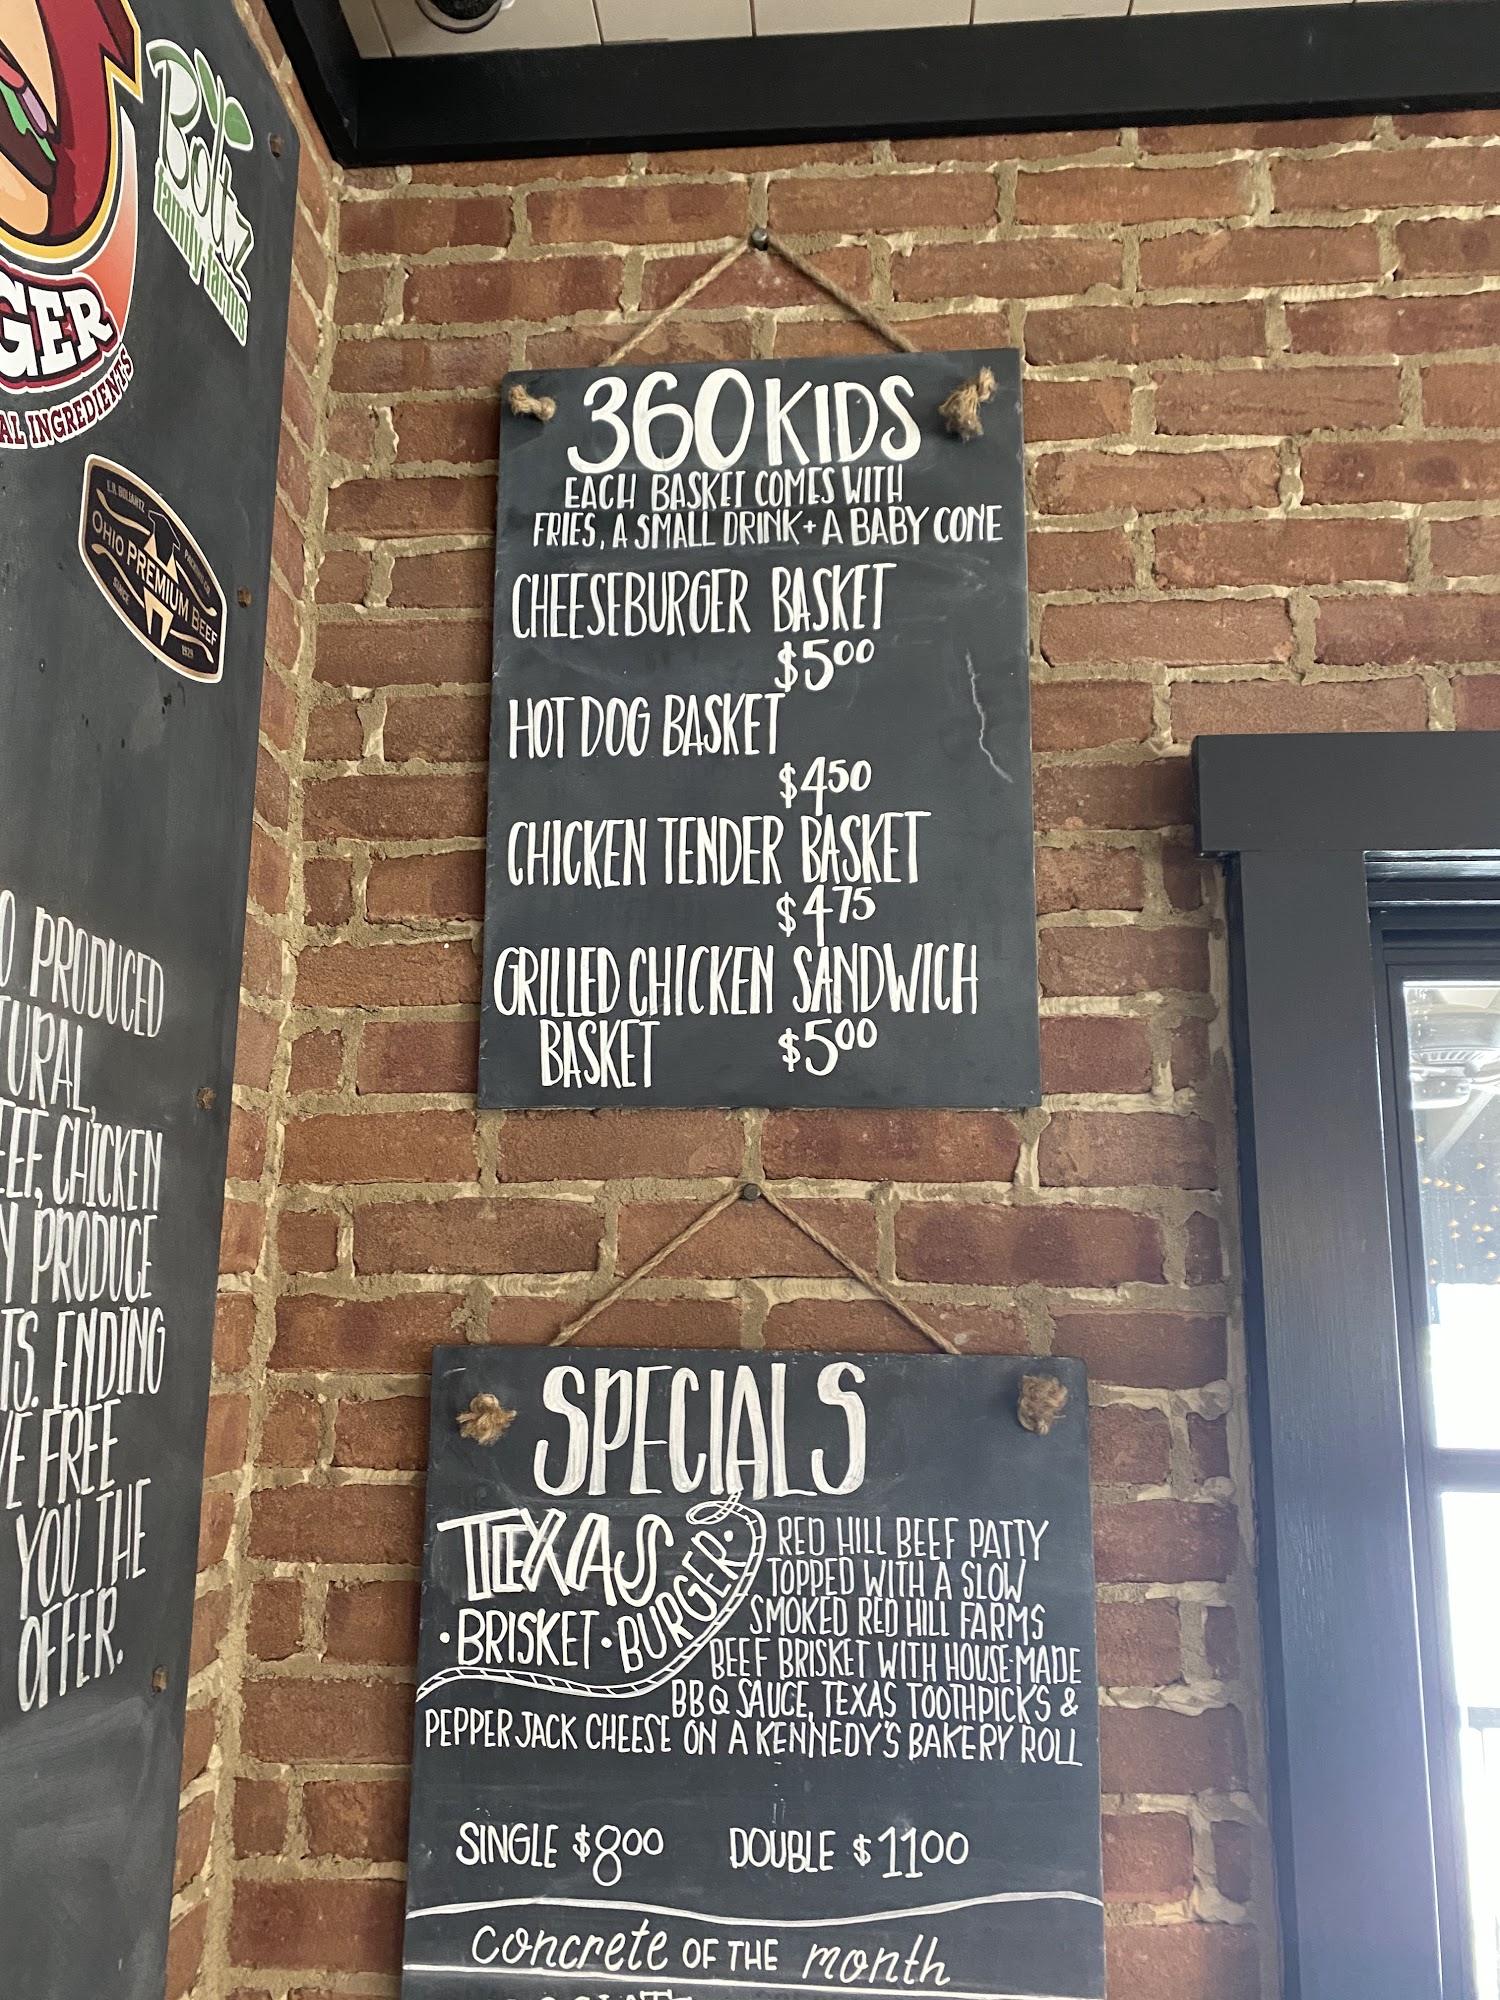 GER
AL INGREDIENTS
Boltz
family farms
E.R. BOLIANTZ
PACKING CO
OHIO PREMIUM BEEF
SINCE
1929
PRODUCED
CHICKEN
PRODUCE
ENDING
FREE
YOU THE
OFFER.
360 KIDS
EACH BASKET COMES WITH
FRIES, A SMALL DRINK + A BABY CONE
CHEESEBURGER BASKET
$5 00
HOT DOG BASKET
$4 50
CHICKEN TENDER BASKET
$4 75
GRILLED CHICKEN SANDWICH
BASKET $5 00
SPECIALS
TEXAS
• BRISKET • BURGER •
RED HILL BEEF PATTY
TOPPED WITH A SLOW
SMOKED RED HILL FARMS
BEEF BRISKET WITH HOUSE-MADE
BBQ SAUCE, TEXAS TOOTHPICKS &
PEPPER JACK CHEESE ON A KENNEDY'S BAKERY ROLL
SINGLE $8 00 DOUBLE $11 00
concrete OF THE month